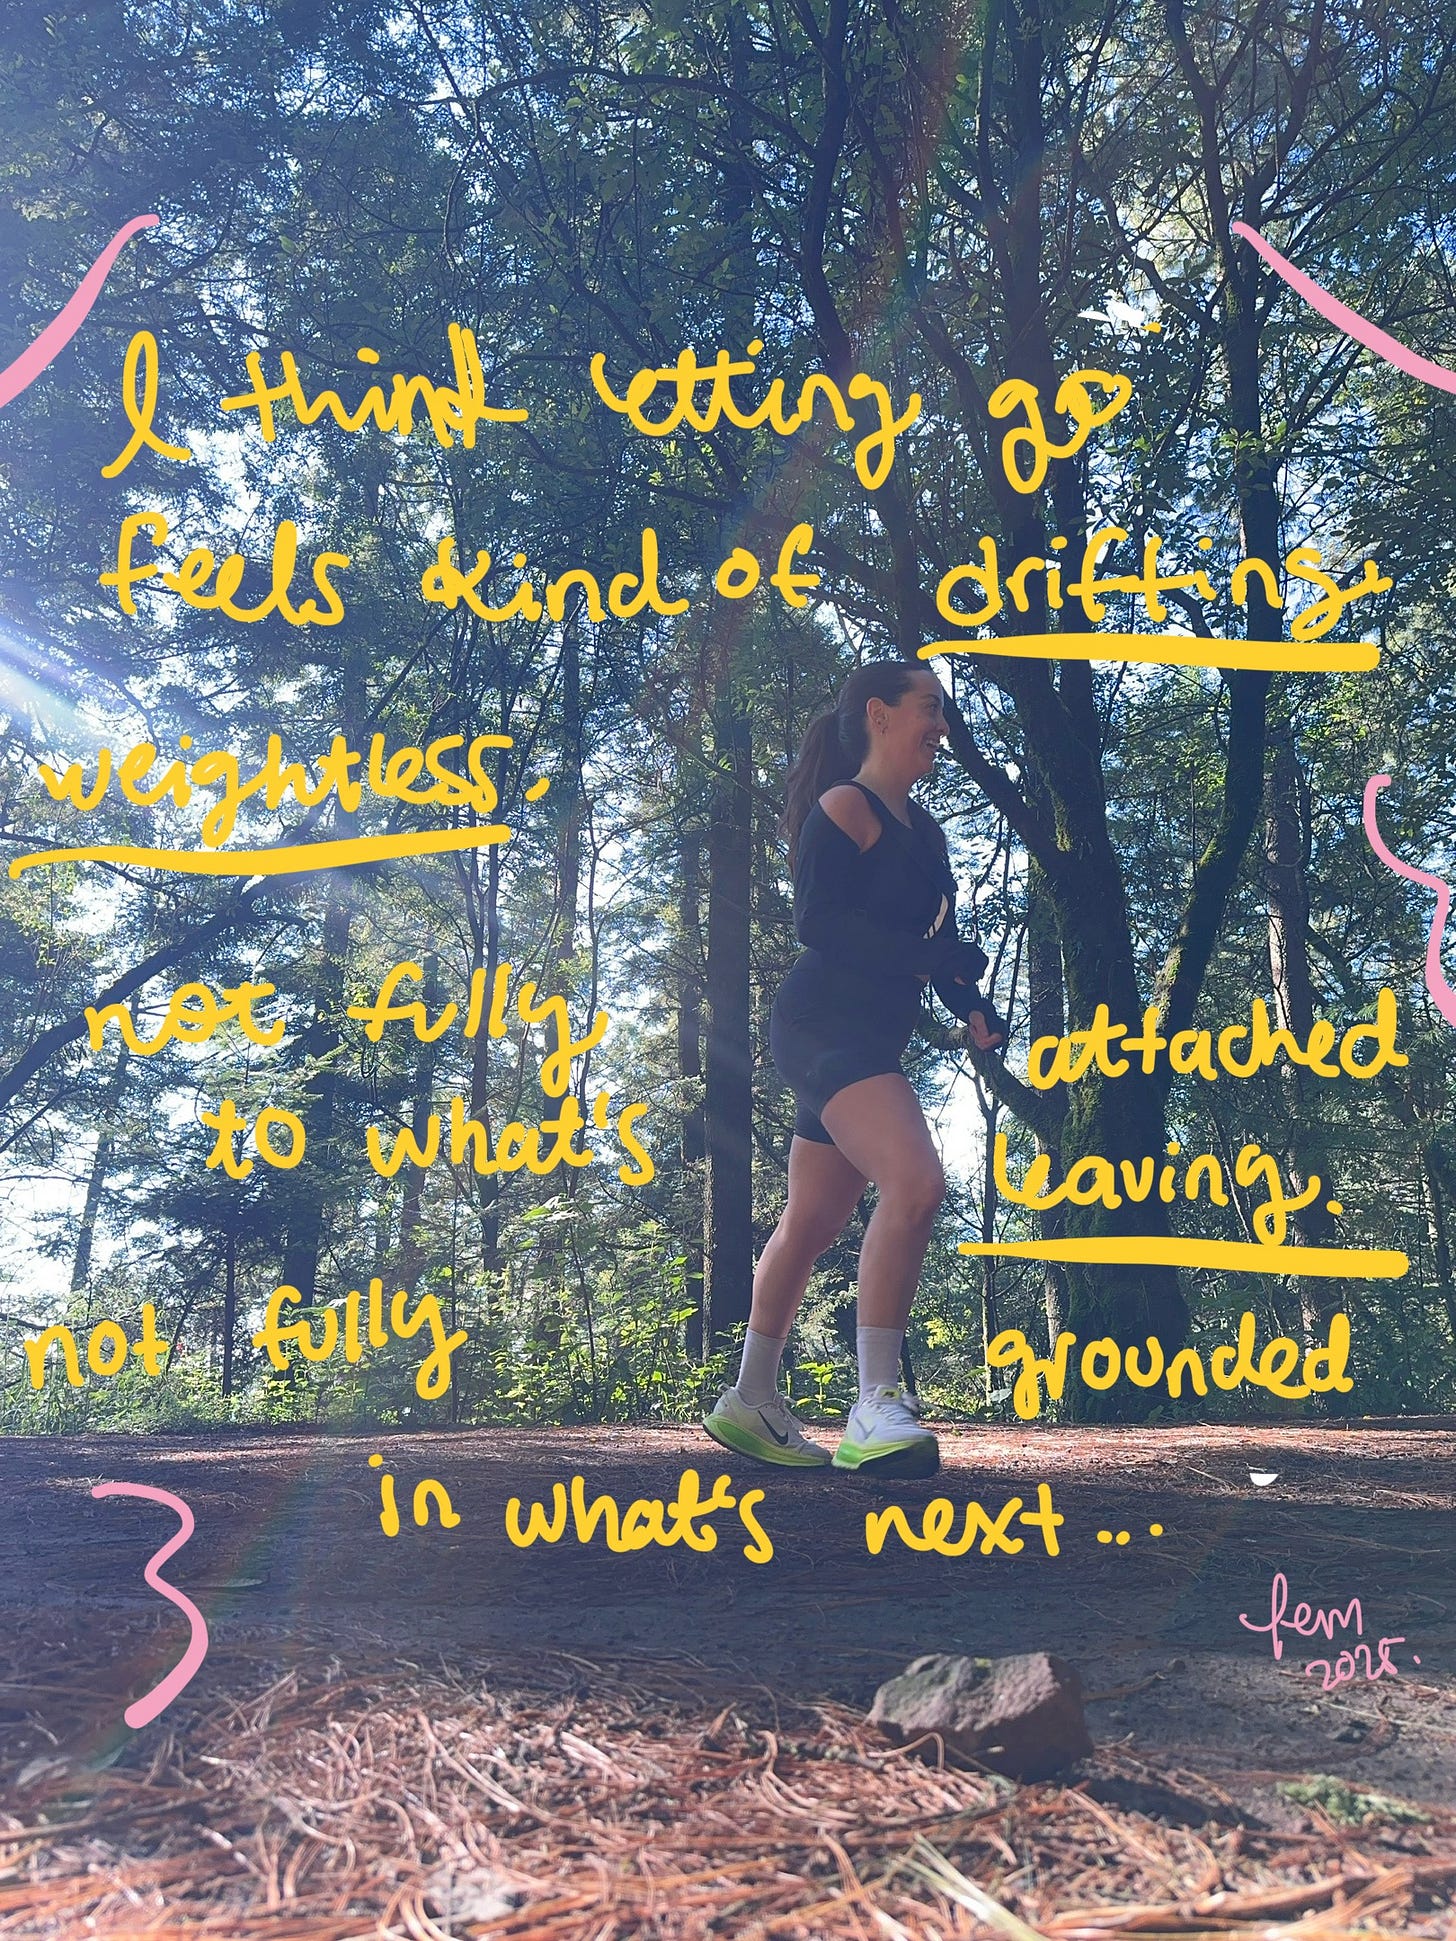 I think letting go
feels kind of drifting,
weightless.
not fully attached
to what's leaving.
not fully grounded
in what's next...
fem
2025.